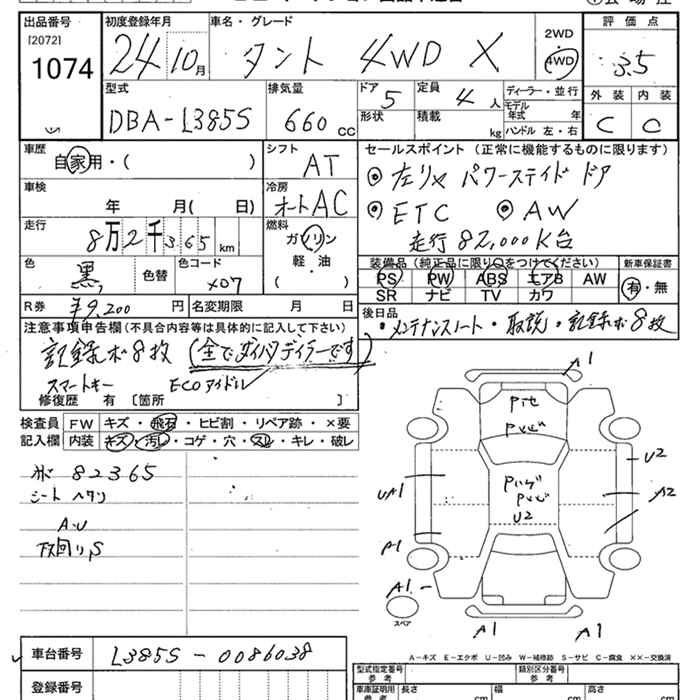 出品番号 初度登録年月 車名・グレード 評価点
[2072]
1074 24 10月 タント 4WD X 2WD 4WD 3.5
型式 排気量 ドア 5 定員 4人 ディーラー・並行 外装 内装
モデル年式 年
DBA-L385S 660cc 形状 積載 kg ハンドル 左・右 C C
車歴 シフト セールスポイント（正常に機能するものに限ります）
自家用・（ ） AT ◎左リヤ パワースライドドア
車検 冷房
年 月（ 日） オートAC ◎ETC ◎AW
走行 燃料 走行82,000K台
8万2千365km ガソリン 装備品（純正品に限り○をつけてください） 新車保証書
色 色替 色コード 軽・油 PS PW ABS エアB AW 有・無
黒 X07 （ ） SR ナビ TV カワ
R券 ¥9,200円 名変期限 月 日 後日品
注意事項申告欄（不具合内容等は具体的に記入して下さい） ・メンテナンスノート・取説・記録ボ8枚
記録ボ8枚（全てダイハツディーラーです）
スマートキー ECOアイドル
修復歴 有〔箇所 〕
検査員 FW キズ・飛石・ヒビ割・リペア跡・×要
記入欄 内装 キズ・汚レ・コゲ・穴・スレ・キレ・破レ
82365
シート ヘタリ
A.U
下回りS
A1
U2
U2
UA1 A2
A1
A1
スペア
A1 A1
A-キズ E-エクボ U-凹み W-補修跡 S-サビ C-腐食 ××-交換済
車台番号 L385S-0086038
型式指定番号 類別区分番号
参考 参考
登録番号
車庫証明用 長さ 幅 高さ
参考 cm cm cm